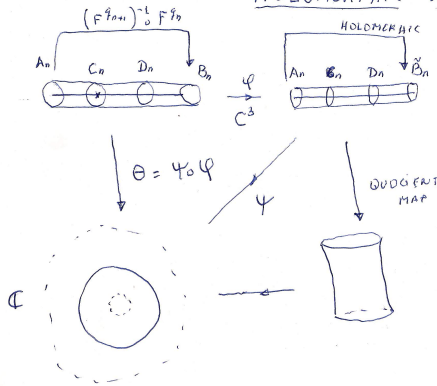 (F^{q_{n+1}})^{-1} ∘ F^{q_n}
HOLOMORPHIC
A_n C_n D_n B_n
φ
C^3
A_n C_n D_n B̃_n
θ = ψ∘φ
ψ
QUOCIENT
MAP
ℂ